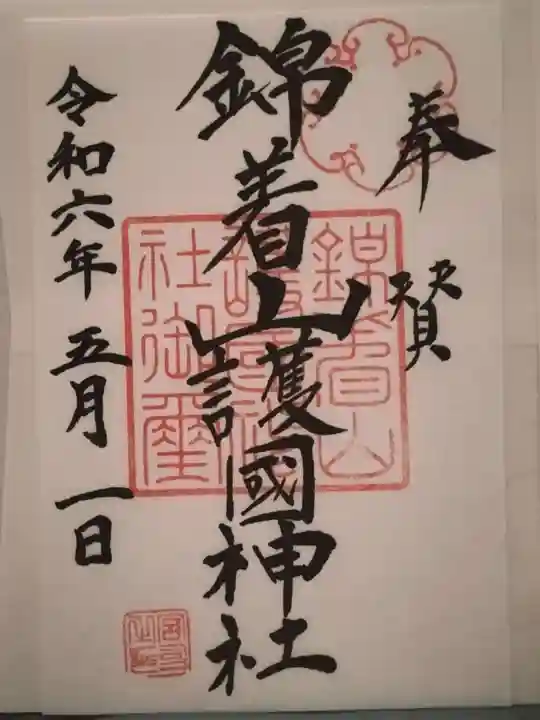 奉賛
錦着山護國神社
錦着山
護國神
社御璽
令和六年五月一日